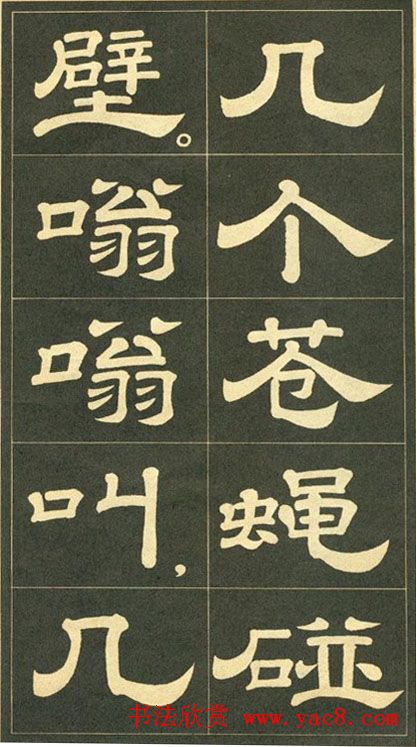 几个苍蝇碰
壁。嗡嗡叫，几
书法欣赏 www.yac8.com